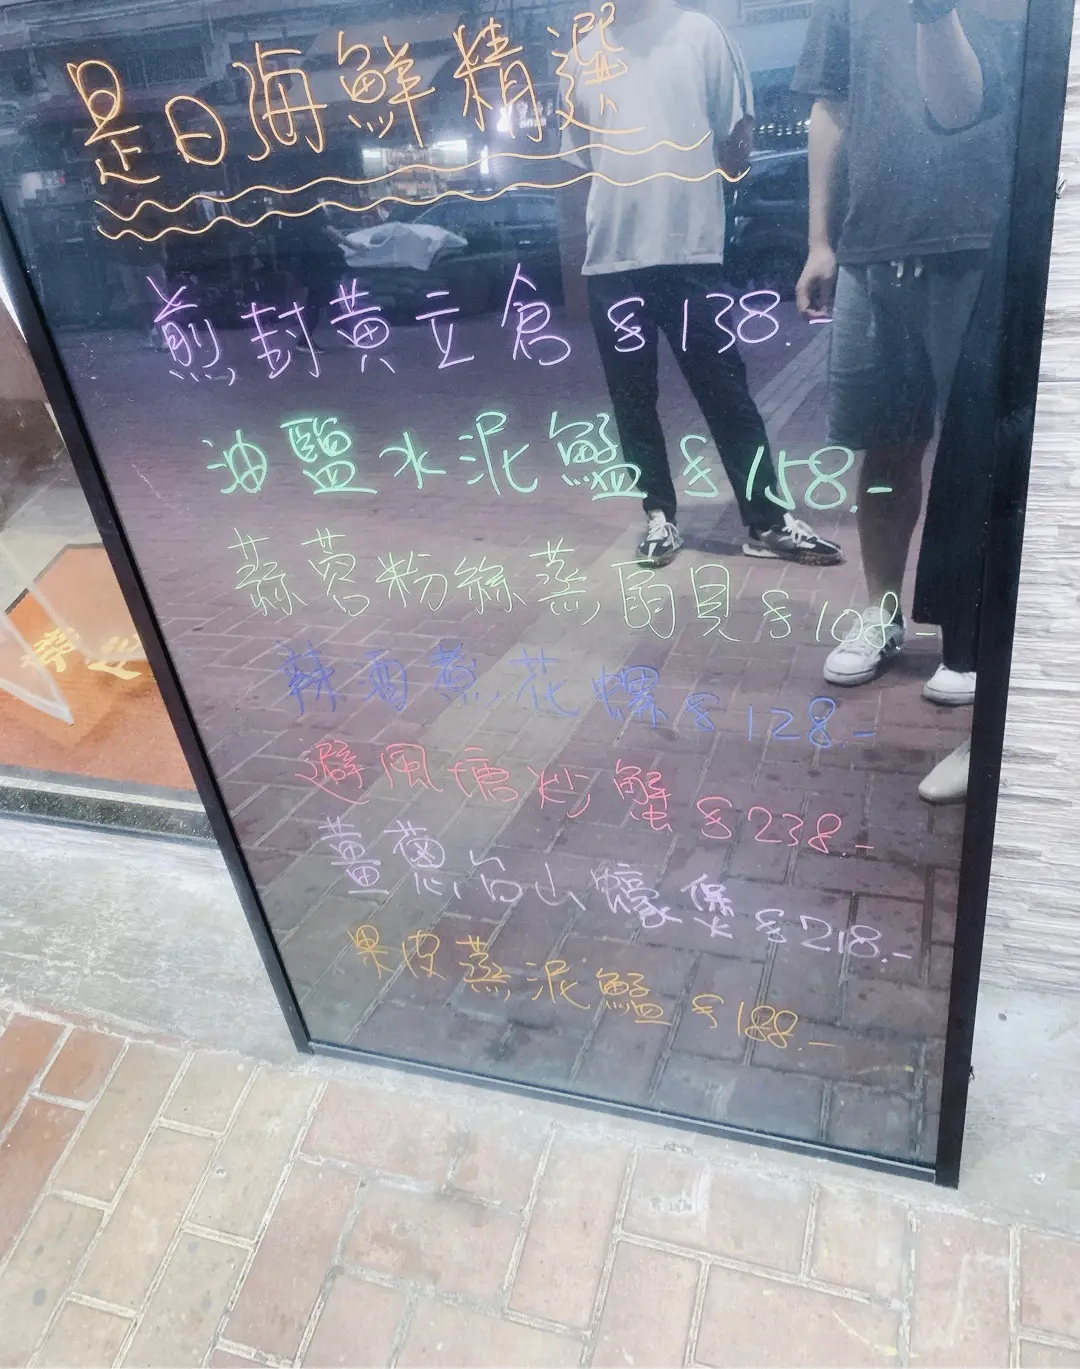 是日海鮮精選
煎封黃立倉 $138.-
油鹽水泥鯭 $158.-
蒜蓉粉絲蒸扇貝 $108.-
辣酒煮花螺 $128.-
避風塘炒蟹 $238.-
薑蔥台山蠔煲 $218.-
果皮蒸泥鯭 $188.-